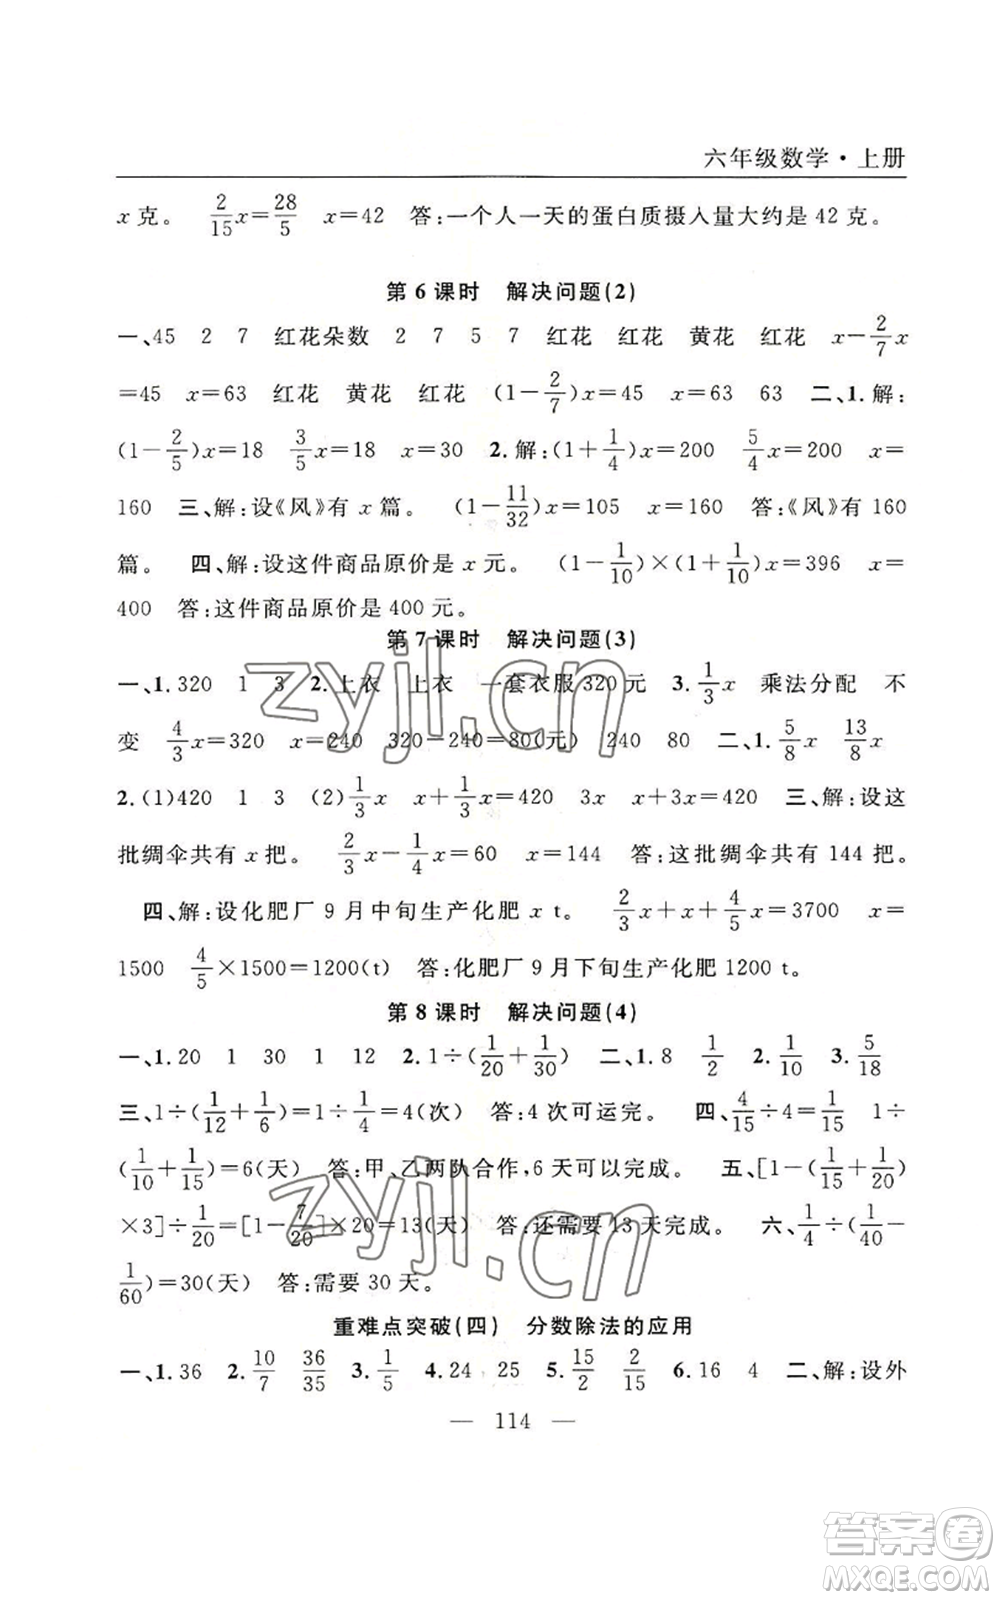 六年级数学·上册
x克。 2/15x=28/5 x=42 答:一个人一天的蛋白质摄入量大约是42克。
第6课时 解决问题(2)
一、45 2 7 红花朵数 2 7 5 7 红花 红花 黄花 红花 x-2/7x
=45 x=63 红花 黄花 红花 (1-2/7)x=45 x=63 63 二、1.解:
(1-2/5)x=18 3/5x=18 x=30 2.解:(1+1/4)x=200 5/4x=200 x=
160 三、解:设《风》有x篇。 (1-11/32)x=105 x=160 答:《风》有160
篇。 四、解:设这件商品原价是x元。 (1-1/10)×(1+1/10)x=396 x=
400 答:这件商品原价是400元。
第7课时 解决问题(3)
一、1.320 1 3 2.上衣 上衣 一套衣服320元 3.1/3x 乘法分配 不
变 4/3x=320 x=240 320-240=80(元) 240 80 二、1.5/8x 13/8x
2.(1)420 1 3 (2)1/3x x+1/3x=420 3x x+3x=420 三、解:设这
批绸伞共有x把。 2/3x-1/4x=60 x=144 答:这批绸伞共有144把。
四、解:设化肥厂9月中旬生产化肥x t。 2/3x+x+4/5x=3700 x=
1500 4/5×1500=1200(t) 答:化肥厂9月下旬生产化肥1200 t。
第8课时 解决问题(4)
一、1.20 1 30 1 12 2.1÷(1/20+1/30) 二、1.8 1/2 2.1/10 3.5/18
三、1÷(1/12+1/6)=1÷1/4=4(次) 答:4次可运完。 四、4/15÷4=1/15 1÷
(1/10+1/15)=6(天) 答:甲、乙两队合作,6天可以完成。 五、[1-(1/15+1/20)
×3]÷1/20=[1-7/20]×20=13(天) 答:还需要13天完成。 六、1/4÷(1/40-
1/60)=30(天) 答:需要30天。
重难点突破(四) 分数除法的应用
一、1.36 2.10/7 36/35 3.1/5 4.24 25 5.15/2 2/15 6.16 4 二、解:设外
— 114 —
zyjl.cn
zyjl.cn
答案圈
MXQE.COM